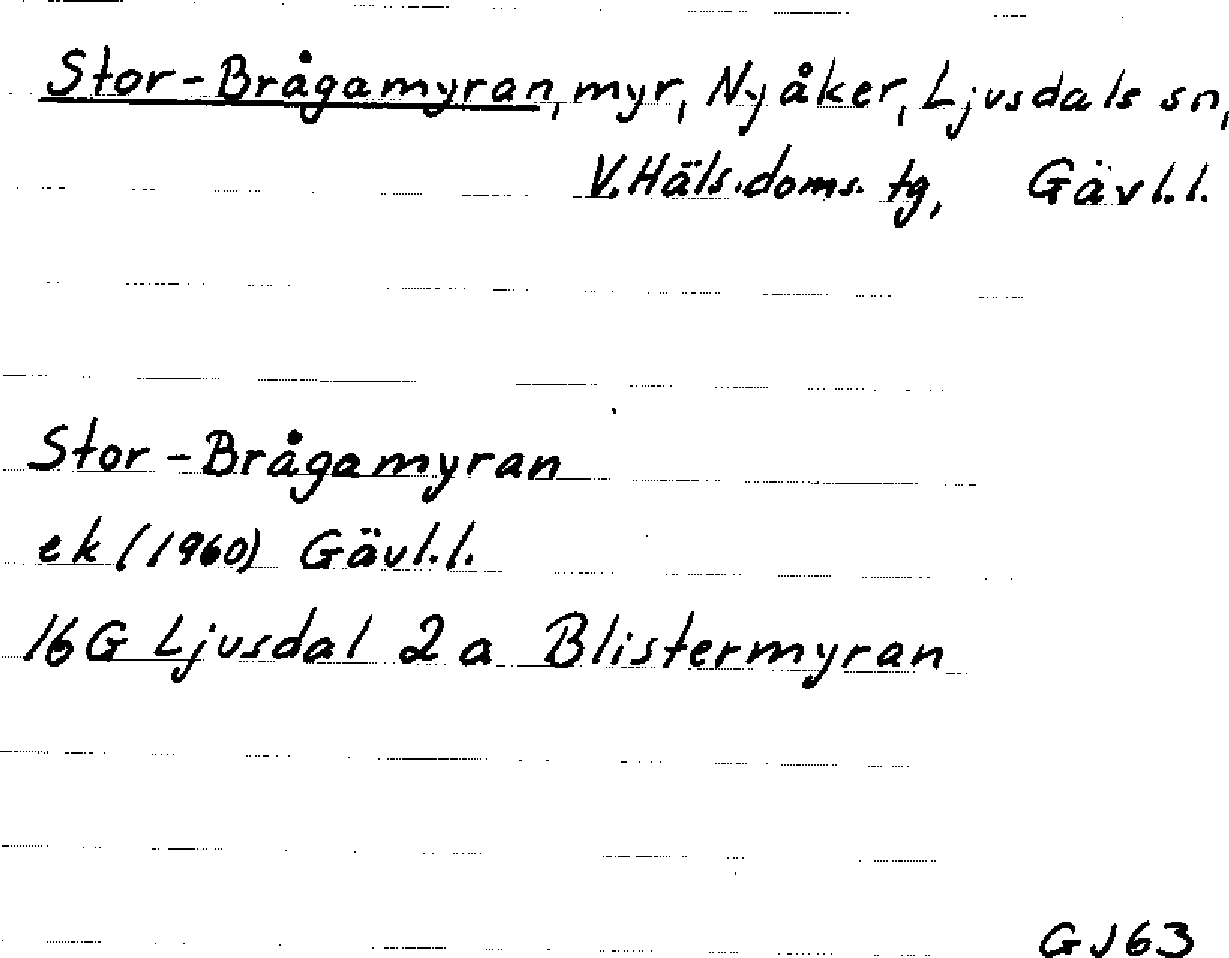 Stor-Brågamyran, myr, Nyåker, Ljusdals sn,
V. Häls. doms. tg, Gävl. l.
Stor-Brågamyran
ek (1960) Gävl. l.
16G Ljusdal 2a Blistermyran
GJ63